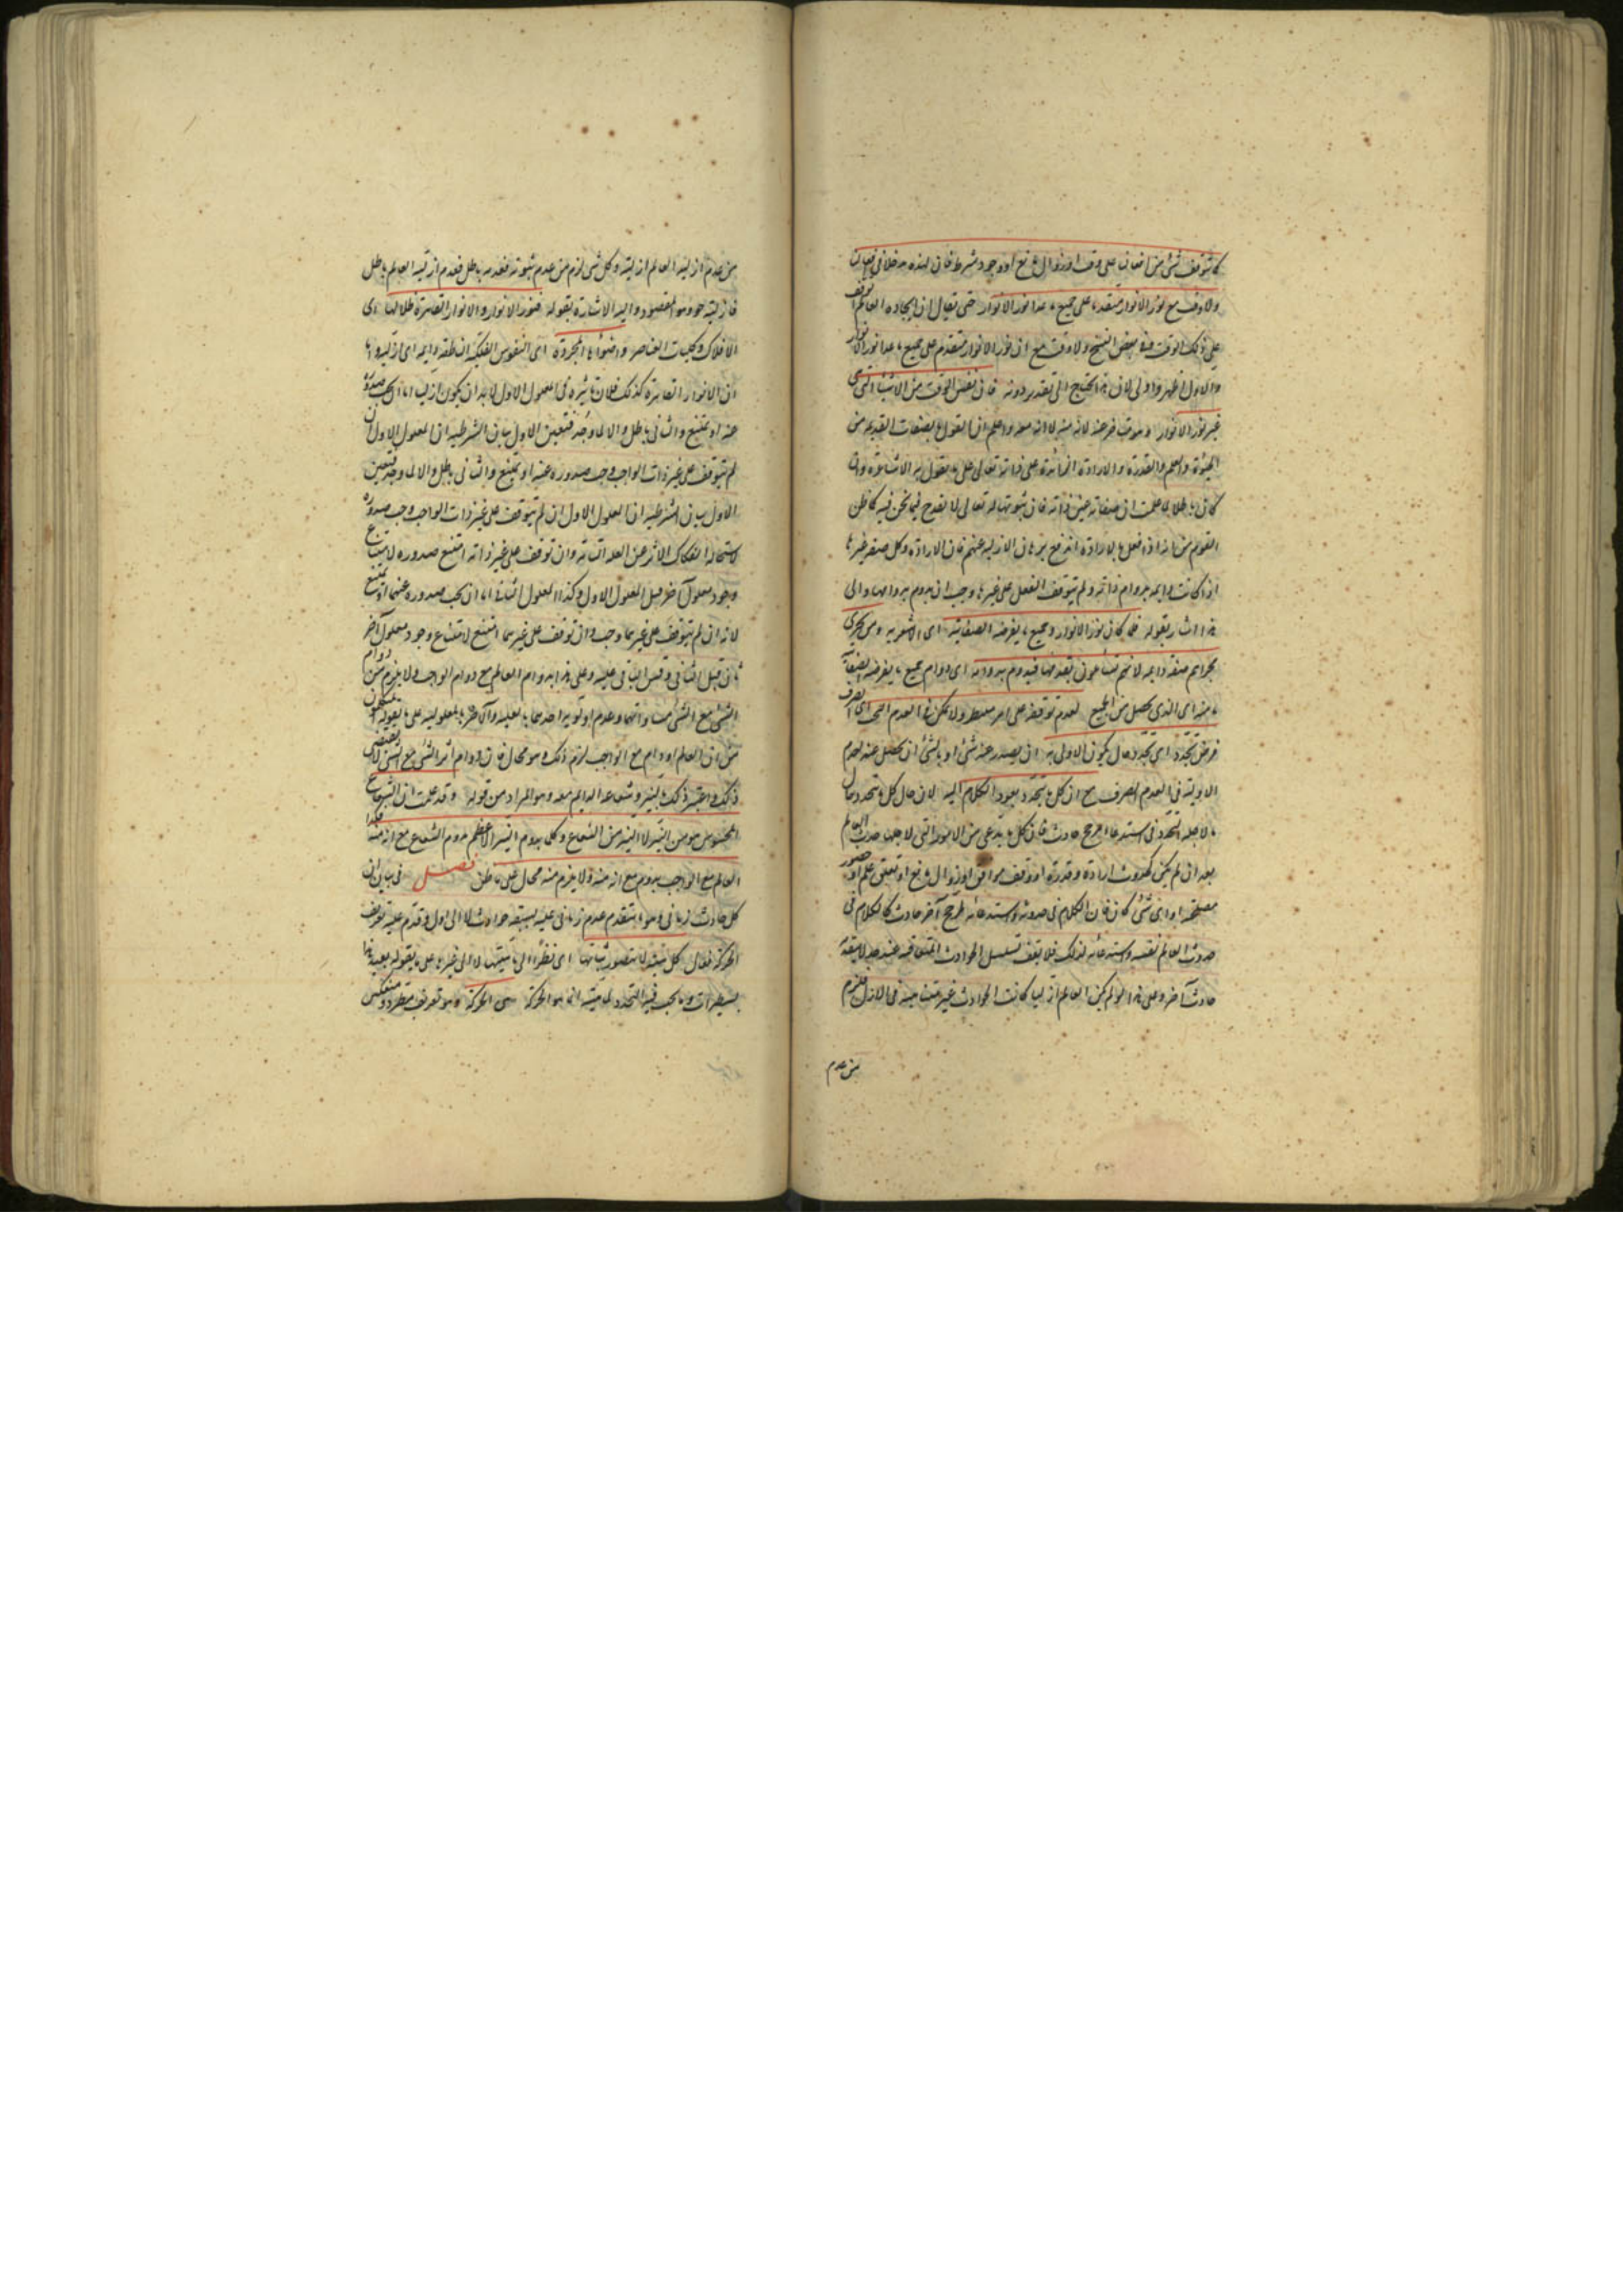 كما توقف شئ من افعالنا على وقت او زوال مانع او وجود شرط فان لهذه مدخلا فى افعالنا
ولا وقت مع نور الانوار متقدم على جميع ما عدا نور الانوار حتى يقال ان ايجاده العالم توقف
على ذلك الوقت وفى بعض النسخ ولا وقت مع ان نور الانوار متقدم على جميع ما عدا نور الانوار
والاول اظهر واولى لان هذا يحتاج الى تقدير دونه فان نفس الوقت من الاشياء التى هى
غير نور الانوار وهو متأخر عنه لانه منه لا انه معه واعلم ان ما يقول بالصفات القديمة من
الحيوة والعلم والقدرة والارادة الزائدة على ذاته تعالى على ما يقول به الاشاعرة وان
كان باطلا لما علمت ان صفاته عين ذاته فان ثبوتها له تعالى لا يقدح فيما نحن فيه كما ظن
القوم من انه اذا فعل بالارادة اندفع برهان الازلية عنهم فان الارادة وكل صفة غيرها
اذا كانت دايمة بدوام ذاته ولم يتوقف الفعل على غيرها وجب ان يدوم بدوامها والى
هذا اشار بقوله فلما كان نور الانوار وجميع ما يفرضه الصفاتية اى الاشعرية ومن يجرى
مجراهم صفة دايمة لانهم يتساعون بقدمها فيدوم بدوامه اى بدوام جميع ما يفرضه الصفاتية
ما منه اى الذى يحصل من الجميع لعدم توقفه على امر منتظر ولا يمكن فى العدم البحت اى الصرف
فرض تجدد اى تجدد حال يكون الاولى به ان يصدر عنه شئ او بالشئ ان يحصل عنه لعدم
الاولوية فى العدم الصرف مع ان كل ما يتجدد يعود الكلام اليه لان حال كل ما يتجدد حال
ما لاجله التجدد فى استدعاء مرجح حادث فان كل ما يدعى من الامور التى لاجلها حدث العالم
بعد ان لم يكن كحدوث ارادة وقدرة او وقت موافق او زوال مانع او تعلق علم او حضور
مصلحة او اى شئ كان فان الكلام فى حدوثه واستدعائه لمرجح آخر حادث كالكلام فى
حدوث العالم نفسه واستدعائه لذلك فلا يقف تسلسل الحوادث المتعاقبة عند حد لا يسبقه
حادث آخر وعلى هذا لو لم يكن العالم ازليا كانت الحوادث غير متناهية فى الازل فيلزم
من عدم
من عدم ازلية العالم ازليته وكل شئ لزم من عدمه ثبوته فعدمه باطل فعدم ازلية العالم باطل
فازليته حق وهو المقصود واليه الاشارة بقوله فنور الانوار والانوار القاهرة ظلالها اى
الافلاك وكليات العناصر واضواؤها المجردة اى النفوس الفلكية الناطقة دايمة اى ازلية اما
ان الانوار القاهرة كذلك فلان تأثيره فى المعلول الاول لا بد ان يكون ازليا اما ان يجب صدوره
عنه او يمتنع والثانى باطل والا لما وجد فتعين الاول بيان الشرطية ان المعلول الاول ان
لم يتوقف على غير ذات الواجب وجب صدوره عنه او يمتنع والثانى باطل والا لما وجد فتعين
الاول بيان الشرطية ان المعلول الاول ان لم يتوقف على غير ذات الواجب وجب صدوره
لاستحالة انفكاك الاثر عن العلة التامة وان توقف على غير ذاته امتنع صدوره لامتناع
وجود معلول آخر قبل المعلول الاول وكذا المعلول الثانى اما ان يجب صدوره عنهما او يمتنع
لانه ان لم يتوقف على غيرهما وجب وان توقف على غيرهما امتنع لامتناع وجود معلول آخر
ثان قبل الثانى وقس الباقى عليه وعلى هذا يدوم العالم مع دوام الواجب ولا يلزم من دوام
الشئ مع الشئ مساواتهما وعدم اولوية احدهما بالعلية والآخر بالمعلولية على ما يقوله
من ان العالم لو دام مع الواجب لزم ذلك وهو محال فان دوام اثر الشئ مع الشئ لا يقتضى
ذلك واعتبر ذلك بالنير وشعاعه الدايم معه وهو المراد من قوله وقد علمت ان الشعاع
المحسوس هو من النير لا النير من الشعاع وكلما يدوم النير الاعظم يدوم الشعاع مع انه منه فكذا
العالم مع الواجب يدوم مع انه منه ولا يلزم منه محال على ما ظن فصل فى بيان ان
كل حادث زمانى وهو ما يتقدم عدم زمانى عليه يسبقه حوادث لا الى اول وقدم عليه تعريف
الحركة فقال كل هيئة لا يتصور ثباتها اى نظرا الى ماهيتها لا الى غيرها على ما يقوله بعيد هذا
بسطر ات وما يجب فيه التجدد لماهيته انما هو الحركة هى الحركة وهو تعريف مطرد منعكس